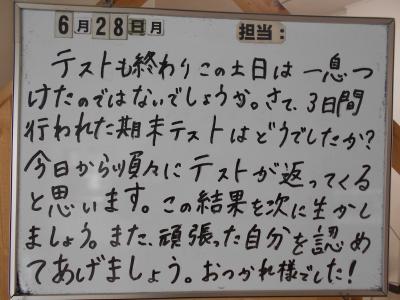 6月28日月 担当:
テストも終わりこの土日は一息つ
けたのではないでしょうか。さて、3日間
行われた期末テストはどうでしたか?
今日から順々にテストが返ってくる
と思います。この結果を次に生かし
ましょう。また、頑張った自分を認め
てあげましょう。おつかれ様でした!